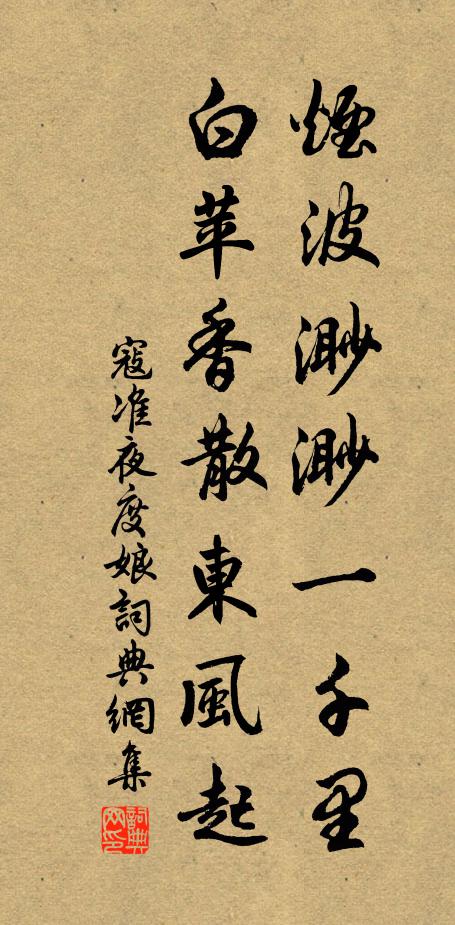 煙波渺渺一千里
白苹香散東風起
寇准夜度娘詞典網集
詞典網印